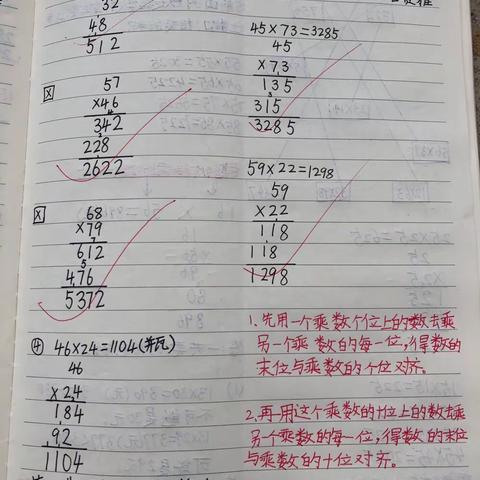 32
48
512
45×73=3285
45
×73
135
315
3285
×
57
×46
342
228
2622
59×22=1298
59
×22
118
118
1298
×
68
×79
612
476
5372
④ 46×24=1104(张瓦)
46
×24
184
92
1104
1.先用一个乘数个位上的数去乘
另一个乘数的每一位,得数的
末位与乘数的个位对齐。
2.再用这个乘数的十位上的数去乘
另个乘数的每一位,得数的末位
与乘数的十位对齐。